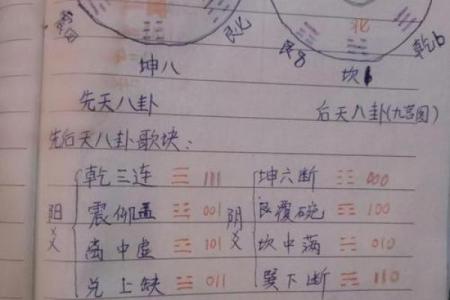 震四
艮七
北
艮8
乾6
坤八
坎1
先天八卦
后天八卦(九宫图)
先后天八卦歌块:
乾三连 ☰ 111 坤六断 ☷ 000
阳 震仰盂 ☳ 001 阴 艮覆碗 ☶ 100
义 离中虚 ☲ 101 义 坎中满 ☵ 010
兑上缺 ☱ 011 巽下断 ☴ 110